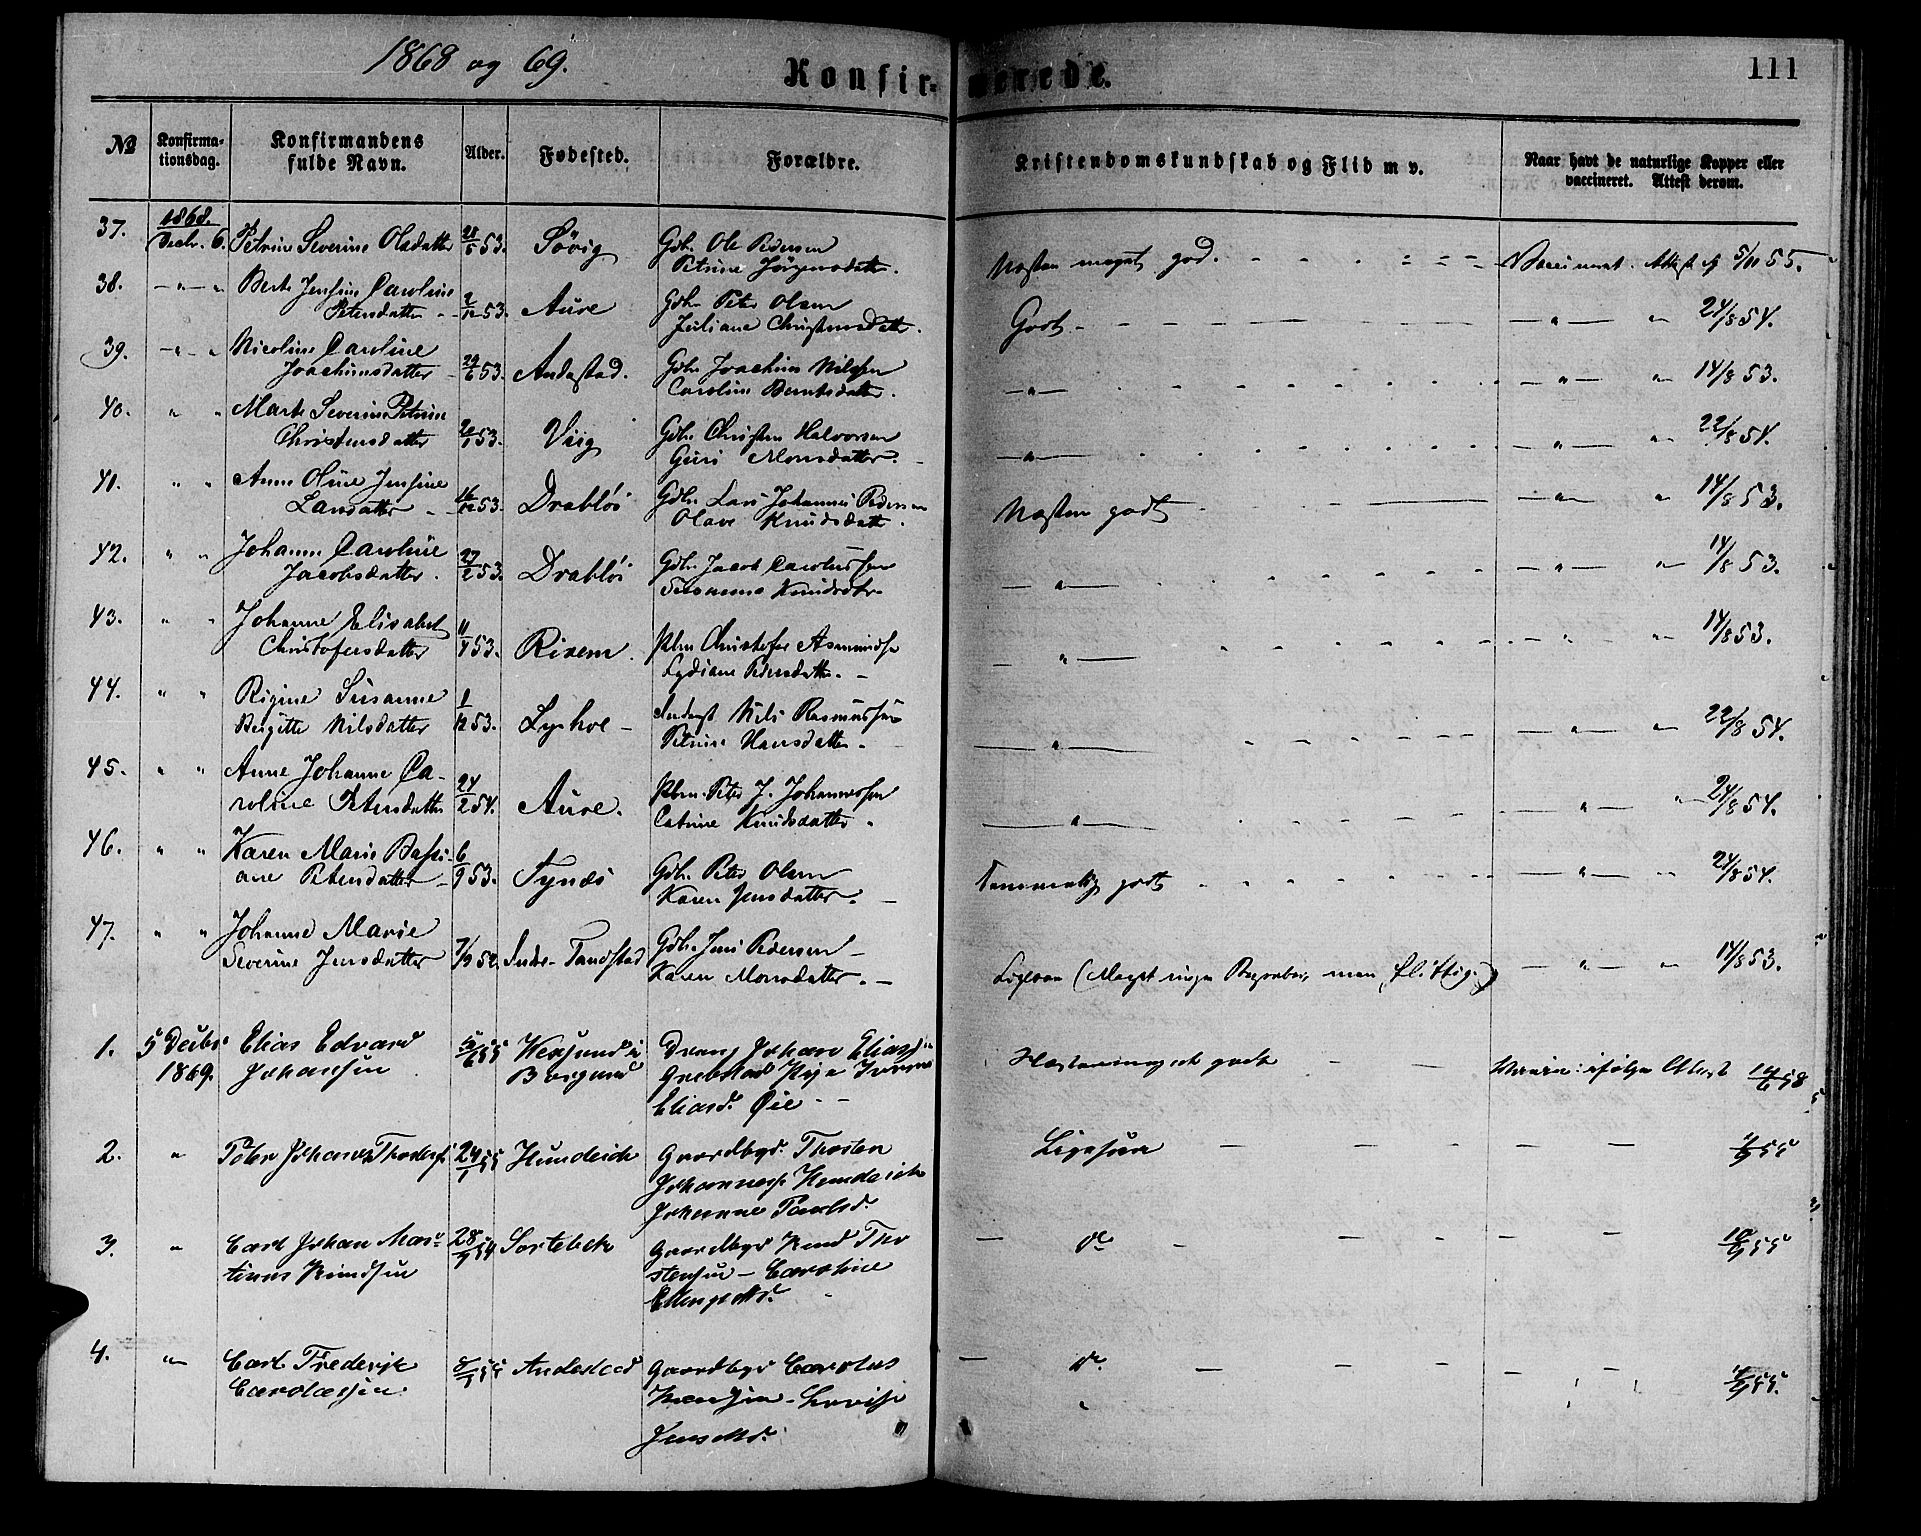 1868 og 69.
Konfirmerede.
111
No
Konfirma-
tionsdag.
Konfirmandens
fulde Navn.
Alder.
Fødested.
Forældre.
Kristendomskundskab og Flid m v.
Naar havt de naturlige Kopper eller
vaccineret. Attest derom.
37. 1868. Decbr. 6. Petrine Severine Olsdatter 28/5 53. Søvig Gdbr. Ole Pedersen
Petrine Jørgensdatter. Næsten meget god. Vaccineret. Attest af 5/10 55.
38. Berte Jensine Caroline
Petersdatter 2/12 53. Aure Gdbr. Peter Olsen
Juliane Christensdatter. Godt 24/8 54.
39. Nicoline Caroline
Joachimsdatter 29/6 53. Andestad. Gdbr. Joachim Nilsen
Caroline Berntsdatter. 14/8 53.
40. Marte Severine Petrine
Christensdatter 20/1 53. Viig Gdbr. Christen Halvorsen
Guri Monsdatter. 22/8 54.
41. Anne Oline Jensine
Larsdatter 16/12 53. Drabløs Gdbr. Lars Johannes Pedersen
Olave Knudsdatter. Næsten godt 14/8 53.
42. Johanne Caroline
Jacobsdatter. 27/2 53. Drabløs Gdbr. Jacob Carolussen
Susanne Knudsdtr 14/8 53.
43. Johanne Elisabet
Christofersdatter 11/4 53. Risem. Plm. Christofer Asmundsen
Lydiane Pedersdatter. 14/8 53.
44. Rigine Susanne
Birgitte Nilsdatter 1/12 53. Lyshol Inderst Nils Rasmussen
Petrine Hansdatter. 22/8 54.
45. Anne Johanne Ca-
roline Petersdatter 24/2 54. Aure. Plm. Peter J. Johannessen
Catrine Knudsdatter. 24/8 54.
46. Karen Marie Bassi-
ane Petersdatter 6/9 53. Tynæs Gdbr. Peter Olsen
Karen Jensdatter. Temmelig godt 24/8 54.
47. Johanne Marie
Severine Jensdatter 7/12 52. Indre-Tandstad Gdbr. Jens Pedersen
Karen Monsdatter. Ligesaa (Meget ringe Begreber, men flittig.) 14/8 53.
1. 5 Decbr
1869. Elias Edvard
Johansen 5/6 55 Hessund i
Borgund Dreng Johan Eliassen
Grebstad Pige
Eliasd. Øie Næsten meget godt Vaccin: ifølge Attest 14/6 58
2. Peter Johannes Thorstens. 24/1 55 Hundeide Gaardbgr. Thorsten
Johanness. Hundeide
Johanne Paulsd. Ligesaa
3. Carl Johan Mar-
tinus Knudsen 28/9 54 Sortebek Gaardbgr Knud Tho-
stensen - Caroline
do
4. Carl Frederik
Carolussen 8/1 55 Andestad Gaardbgr Carolus
Lovise
Jensdtd. do